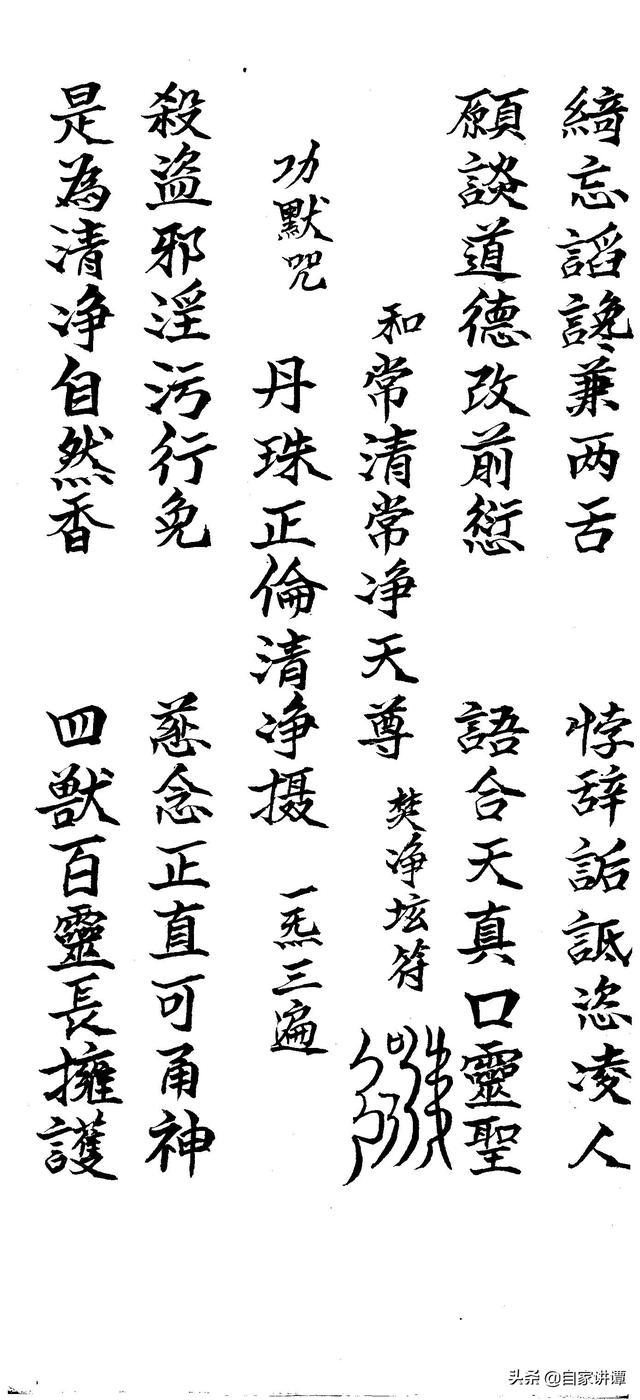 綺忘謟讒兼两舌　悖辞詬詆恣凌人
願談道德改前愆　語合天真口靈聖
和常清常净天尊　焚净坛符
功默咒　丹珠正倫清净摄　一炁三遍
殺盗邪淫污行免　慈念正直可甬神
是為清净自然香　四獸百靈長擁護
头条 @自家讲谭